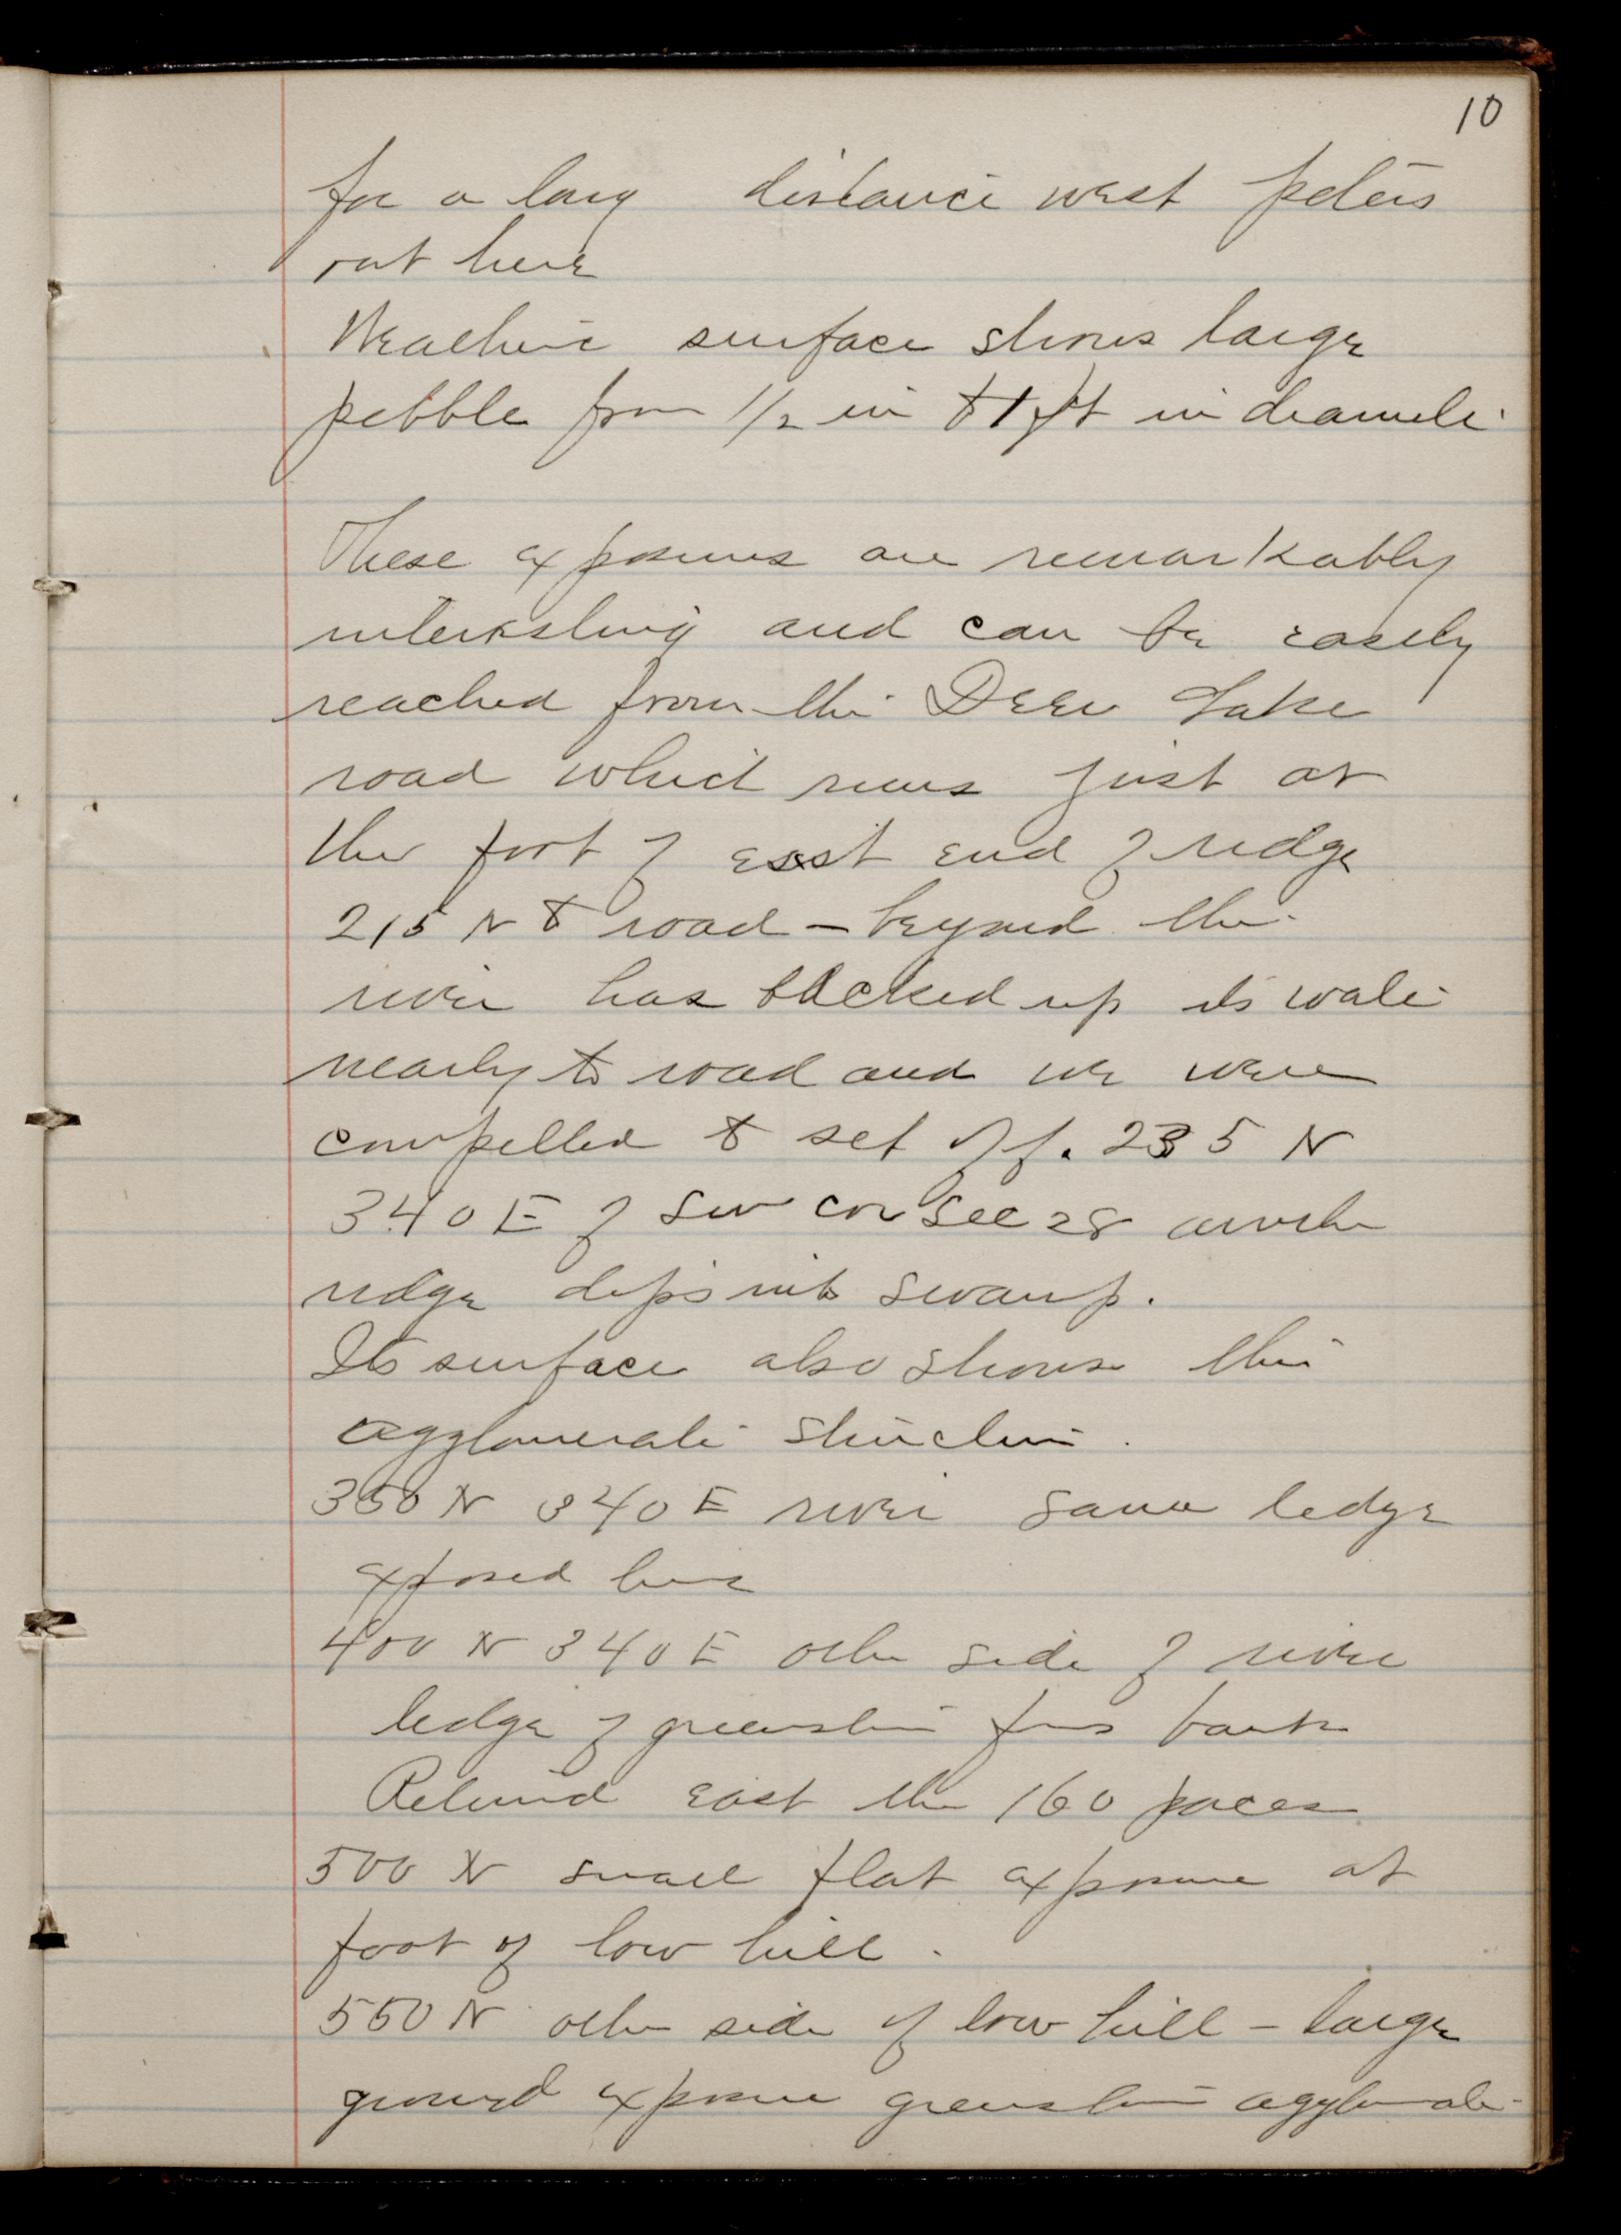 10
for a long distance west peters
out here
Weathere surface shows large
pebble from 1/2 in to 1 ft in diameter
These exposures are remarkably
interesting and can be easily
reached from the Deer Lake
road which runs just at
the foot of east end of ridge
215 N to road - beyond the
river has backed up its water
nearly to road and we were
compelled to set off. 235 N
340 E of SW cor Sec 28 another
ridge dips into swamp.
Its surface also shows this
agglomerate structure.
350 N 340 E river same ledge
exposed here
400 N 340 E other side of river
ledge of greenstone forms bank
Returned east the 160 paces
500 N small flat exposure at
foot of low hill.
550 N other side of low hill - large
ground exposure greenstone agglomerate